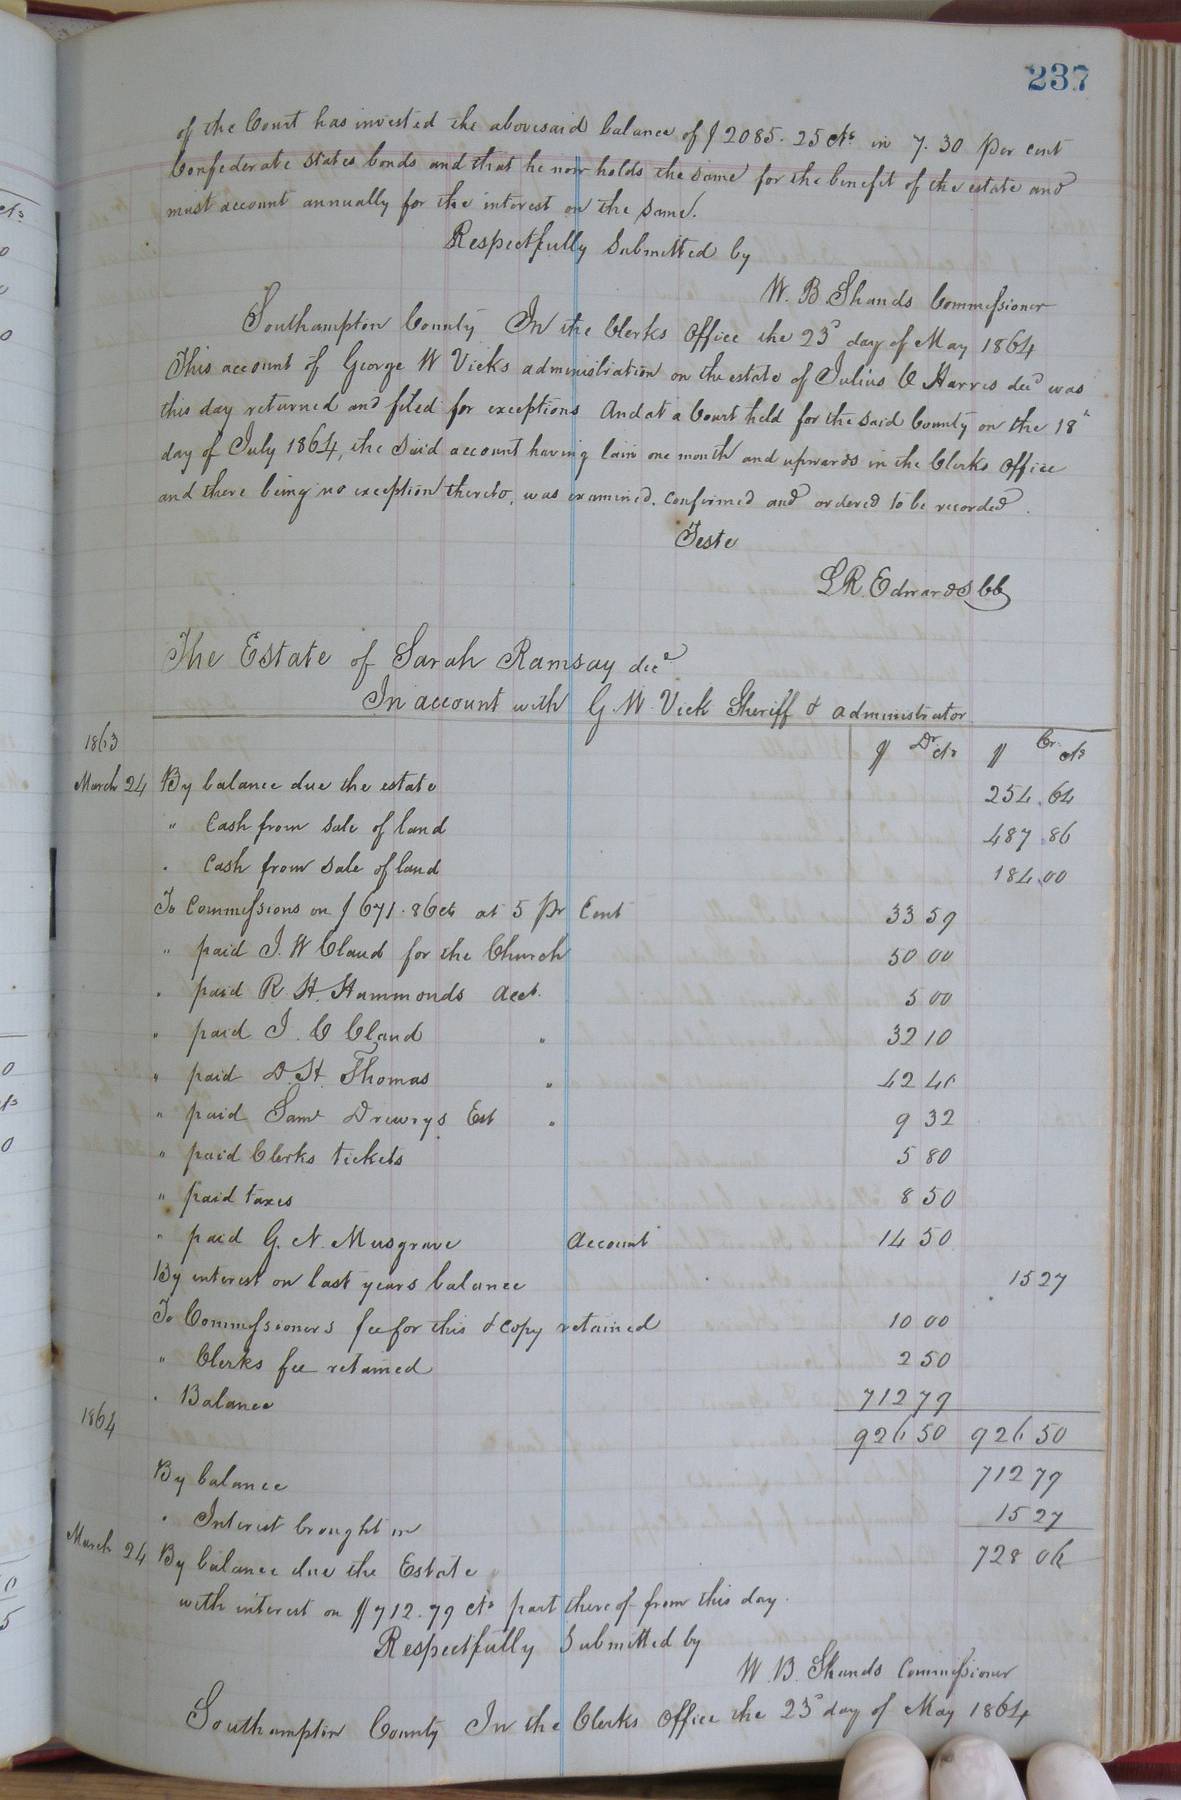 237
of the Court has invested the abovesaid balance of $2085.25 cts in 7.30 per cent
Confederate States bonds and that he now holds the same for the benefit of the estate and
must account annually for the interest on the same.
Respectfully Submitted by
W. B. Shands Commissioner
Southampton County In the Clerks Office the 23d day of May 1864
This account of George W Vicks administration on the estate of Julius C Harris decd was
this day returned and filed for exceptions And at a Court held for the said County on the 18th
day of July 1864, the said account having lain one month and upwards in the Clerks Office
and there being no exception thereto, was examined, confirmed and ordered to be recorded.
Teste
L R. Edwards CC
The Estate of Sarah Ramsay decd
In account with G. W. Vick Sheriff & administrator
1863 $ Dr cts $ Cr cts
March 24 By balance due the estate 254.64
" Cash from sale of land 487.86
" Cash from sale of land 184.00
To Commissions on $671.86cts at 5 Pr Cent 33 59
" paid J. W Claud for the Church 50 00
" paid R. H. Hammonds Acct. 5 00
" paid J. C Claud " 32 10
" paid D. H. Thomas " 42 40
" paid Saml Drewrys Est " 9 32
" paid Clerks tickets 5 80
" paid taxes 8 50
" paid G. N. Musgrave Account 14 50
By interest on last years balance 15 27
To Commissioners fee for this & copy retained 10 00
" Clerks fee retained 2 50
" Balance 712 79
1864 926 50 926 50
By balance 712 79
" Interest brought in 15 27
March 24 By balance due the Estate 728 06
with interest on $712.79 cts part thereof from this day.
Respectfully Submitted by
W. B. Shands Commissioner
Southampton County In the Clerks Office the 23d day of May 1864